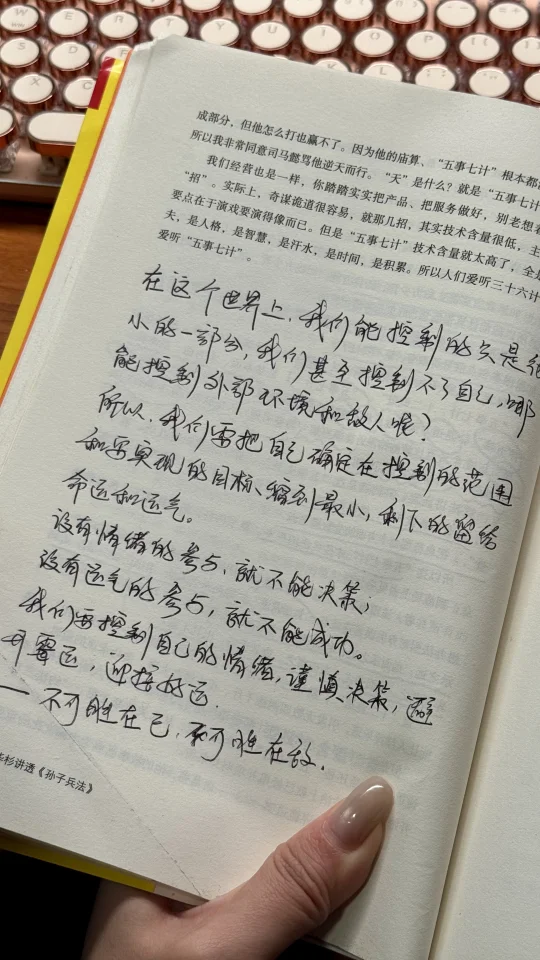 成部分，但他怎么打也赢不了。因为他的庙算、“五事七计”根本都
所以我非常同意司马懿骂他逆天而行。“天”是什么？就是“五事七计
我们经营也是一样，你踏踏实实把产品、把服务做好，别老想着
“招”。实际上，奇谋诡道很容易，就那几招，其实技术含量很低，主
要点在于演戏要演得像而已。但是“五事七计”技术含量就太高了，全是
夫，是人格，是智慧，是汗水，是时间，是积累。所以人们爱听三十六计
爱听“五事七计”。
在这个世界上，我们能控制的只是很
小的一部分，我们甚至控制不了自己，哪
能控制外部环境和敌人呢？
所以，我们需把自己确定在控制的范围
和实现的目标、缩到最小，剩下的留给
命运和运气。
没有情绪的参与，就不能决策；
没有运气的参与，就不能成功。
我们要控制自己的情绪，谨慎决策，避
开霉运，迎接好运.
— 不可胜在己，可胜在敌.
华杉讲透《孙子兵法》
W
R
T
Y
U
I
O
P
S
D
X
C